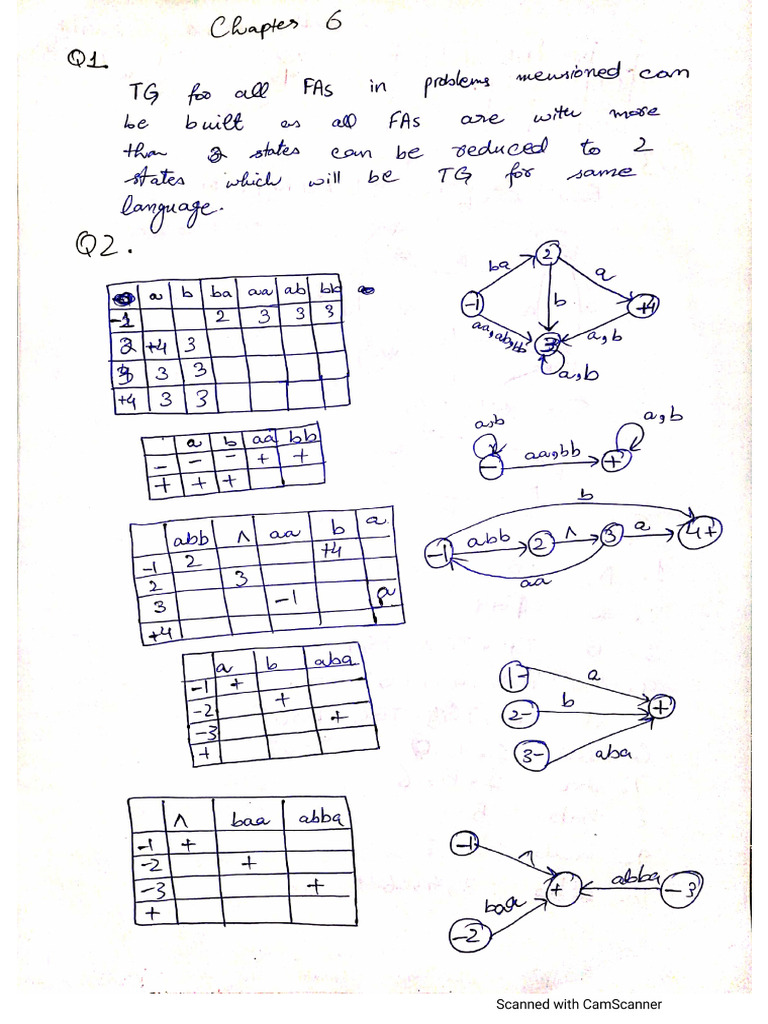 Chapter 6
Q1.
TG for all FAs in problems mensioned can
be built as all FAs are with more
than 2 states can be reduced to 2
states which will be TG for same
language.
Q2.
a b ba aa ab bb
-1 2 3 3 3
2 +4 3
3 3 3
+4 3 3
ba 2 a
-1 b +4
aa,ab,bb 3 a,b
a,b
a b aa bb
- - - + +
+ + +
a,b aa,bb a,b
- +
abb ^ aa b a
-1 2 +4
2 3
3 -1
+4
b
-1 abb 2 ^ 3 a 4+
aa
a b aba
-1 +
-2 +
-3 +
+
1- a
2- b +
3- aba
^ baa abba
-1 +
-2 +
-3 +
+
-1 ^
+ abba -3
-2 baa
Scanned with CamScanner